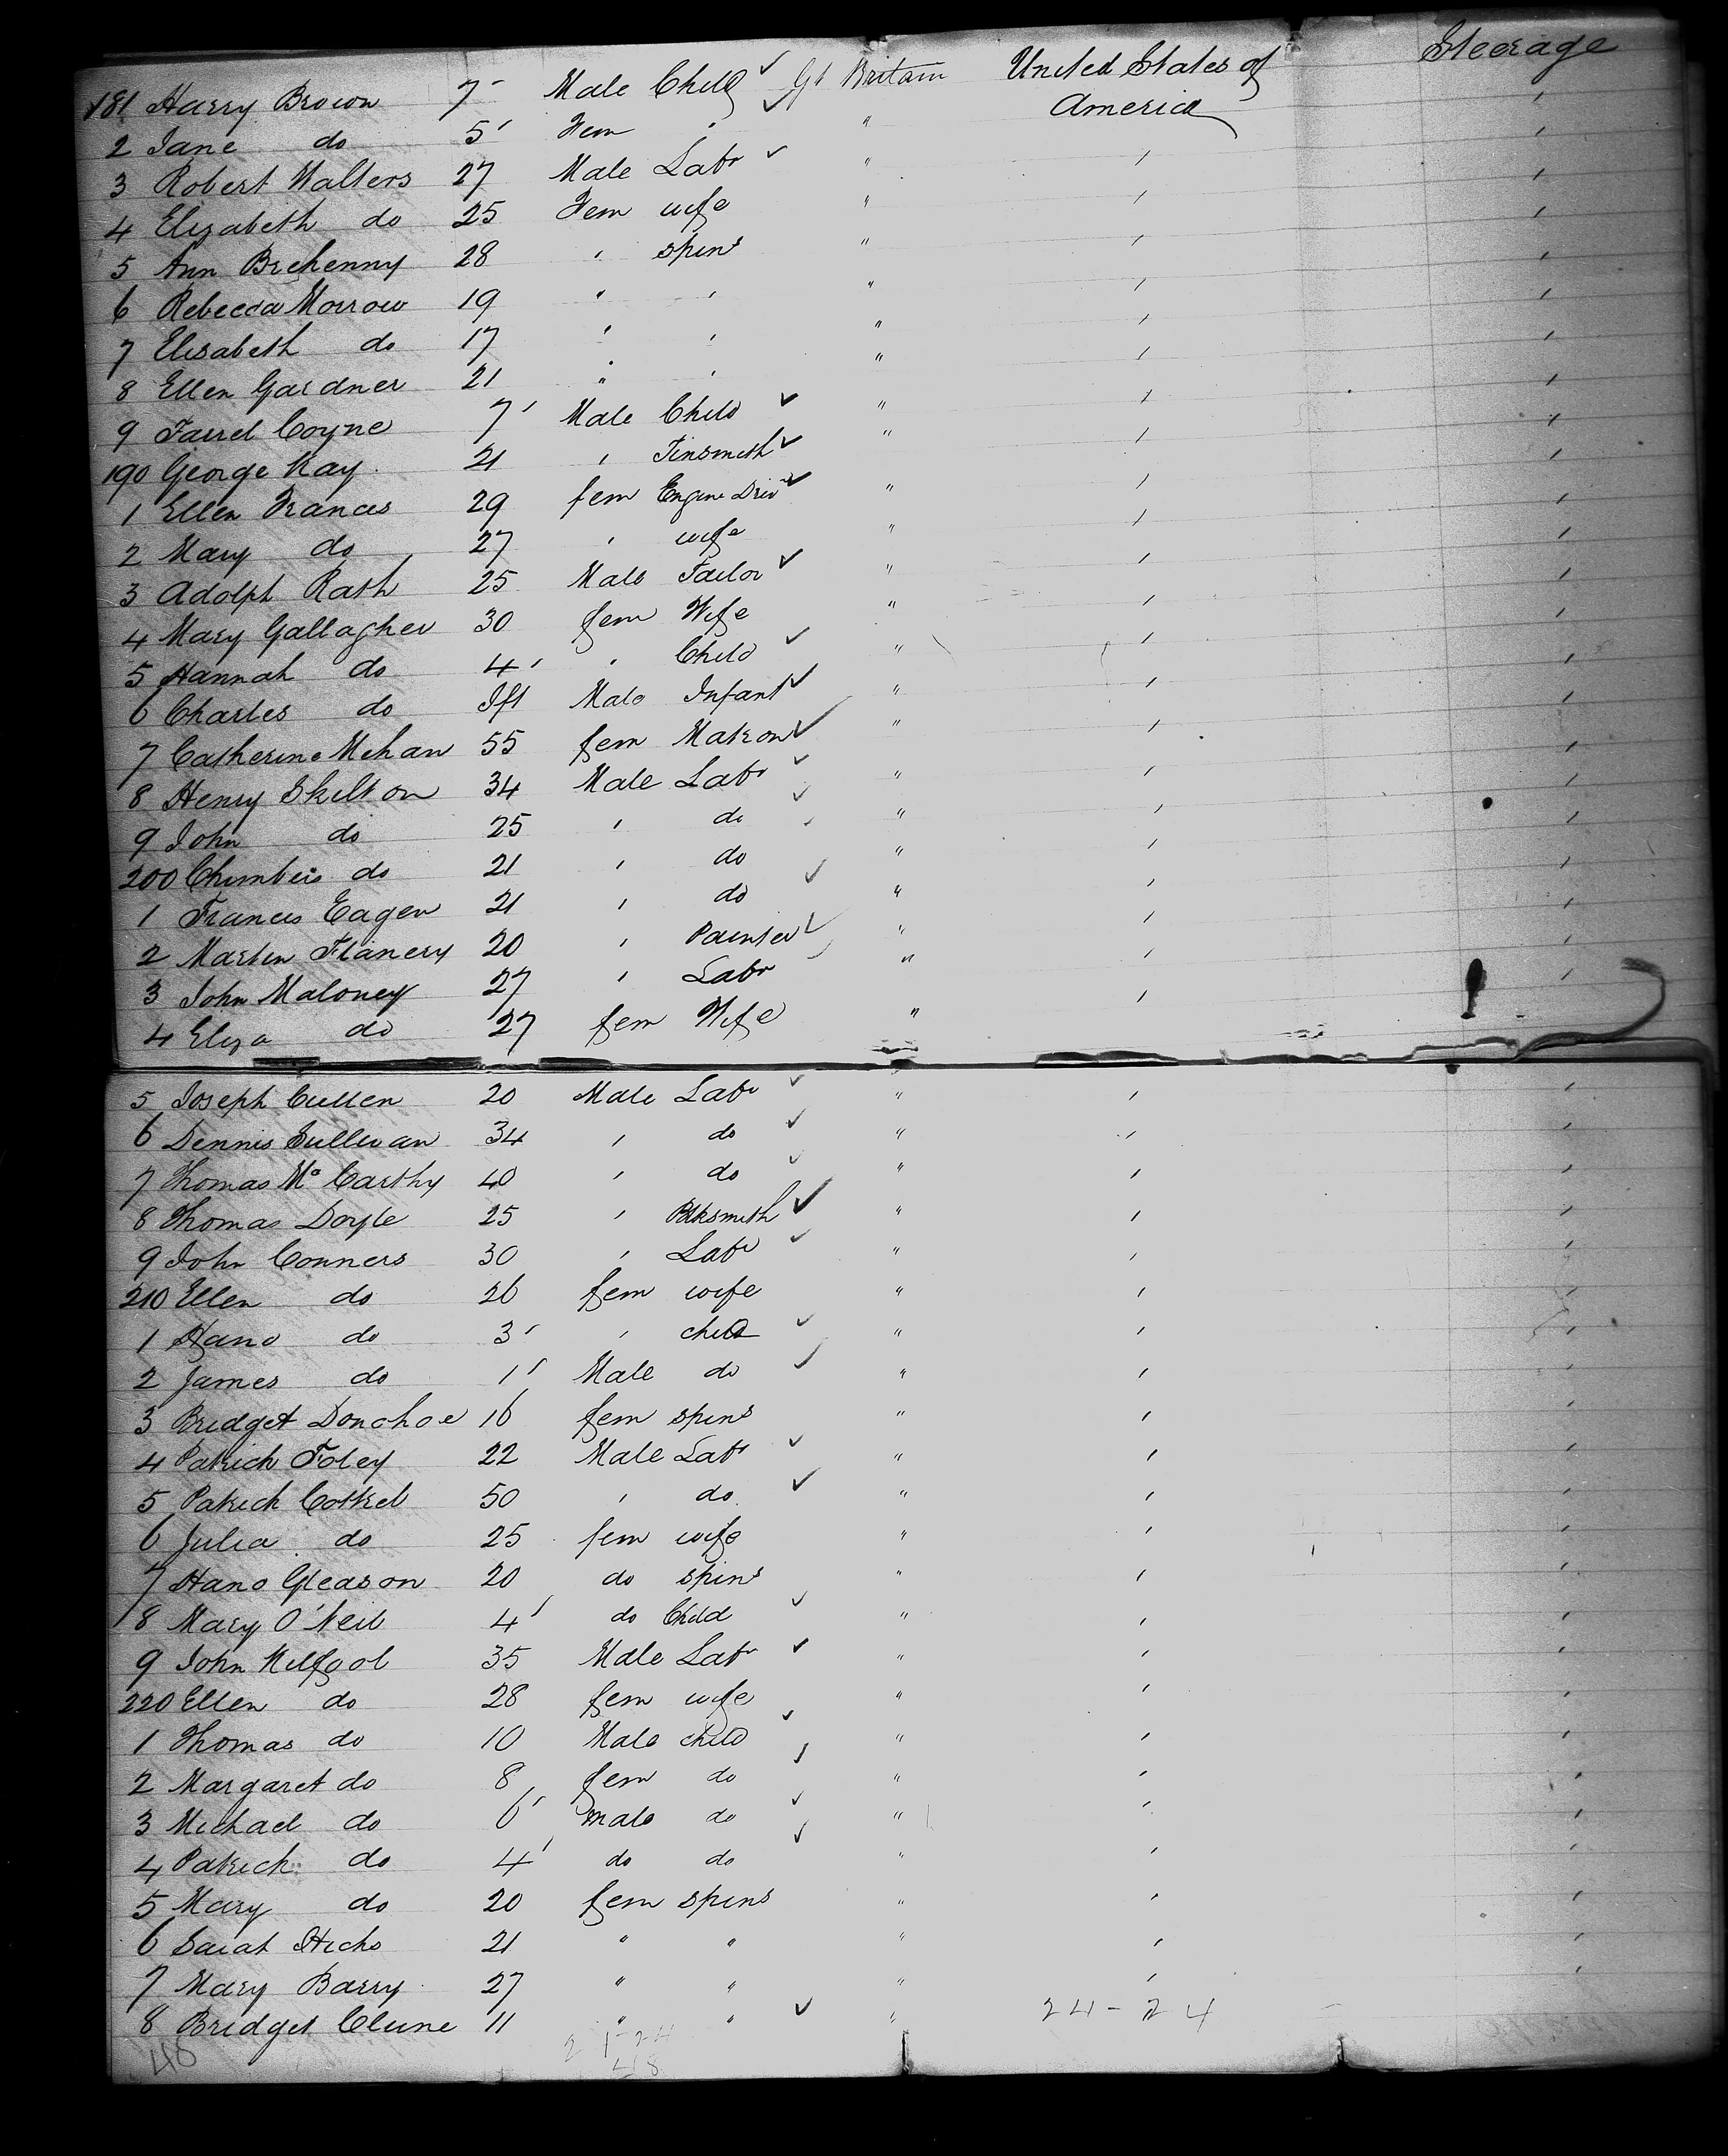 Steerage
181 Harry Brown 7 Male Child Gt Britain United States of
America
2 Jane do 5 Fem " "
3 Robert Walters 27 Male Labr " "
4 Elizabeth do 25 Fem wife " "
5 Ann Brehenny 28 " spins " "
6 Rebecca Morrow 19 " " " "
7 Elisabeth do 17 " " " "
8 Ellen Gardner 21 " " " "
9 Farrel Coyne 7 Male Child " "
190 George Kay 21 " Tinsmith " "
1 Ellen Francis 29 fem Engine Driv " "
2 Mary do 27 " wife " "
3 Adolph Rath 25 Male Tailor " "
4 Mary Gallagher 30 fem Wife " "
5 Hannah do 4 " Child " "
6 Charles do Ift Male Infant " "
7 Catherine Mehan 55 fem Matron " "
8 Henry Skelton 34 Male Labr " "
9 John do 25 " do " "
200 do 21 " do " "
1 Francis Eagen 21 " do " "
2 Martin Flanery 20 " Painter " "
3 John Maloney 27 " Labr " "
4 Eliza do 27 fem Wife "
5 Joseph Cullen 20 Male Labr " "
6 Dennis Sullivan 34 " do " "
7 Thomas Mc Carthy 40 " do " "
8 Thomas Doyle 25 " Blksmith " "
9 John Conners 30 " Labr " "
210 Ellen do 26 fem wife " "
1 Hano do 3 " child " "
2 James do 1 Male do " "
3 Bridget Donohoe 16 fem spins " "
4 Patrick Foley 22 Male Labr " "
5 Patrick Cotkel 50 " do " "
6 Julia do 25 fem wife " "
7 Hano Gleason 20 do spins " "
8 Mary O'Neil 4 do Child " "
9 John Kilfgol 35 Male Labr " "
220 Ellen do 28 fem wife " "
1 Thomas do 10 Male child " "
2 Margaret do 8 fem do " "
3 Michael do 6 male do " "
4 Patrick do 4 do do " "
5 Mary do 20 fem spins " "
6 Sarah Hicks 21 " " " "
7 Mary Barry 27 " " " "
8 Bridget Clune 11 " " " 24-24
48
48